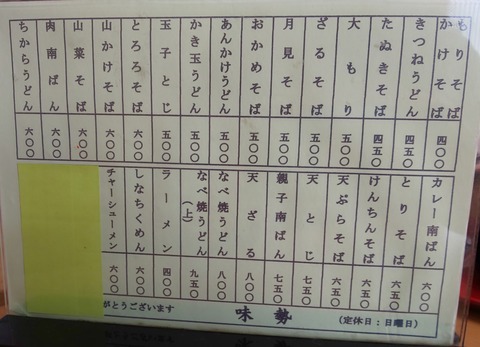 もりそば
かけそば 四〇〇
きつねうどん 四五〇
たぬきそば 四五〇
大もり 五〇〇
ざるそば 五〇〇
月見そば 五〇〇
おかめそば 五〇〇
あんかけうどん 五〇〇
かき玉うどん 五〇〇
玉子とじ 五〇〇
とろろそば 六〇〇
山かけそば 六〇〇
山菜そば 六〇〇
肉南ばん 六〇〇
ちからうどん 六〇〇
カレー南ばん 六〇〇
とりそば 六五〇
けんちんそば 六五〇
天ぷらそば 六五〇
天とじ 七五〇
親子南ばん 七五〇
天ざる 八〇〇
なべ焼うどん 八〇〇
なべ焼うどん(上) 九五〇
ラーメン 四〇〇
しなちくめん 六〇〇
チャーシューメン 六〇〇
がとうございます
味勢
(定休日:日曜日)